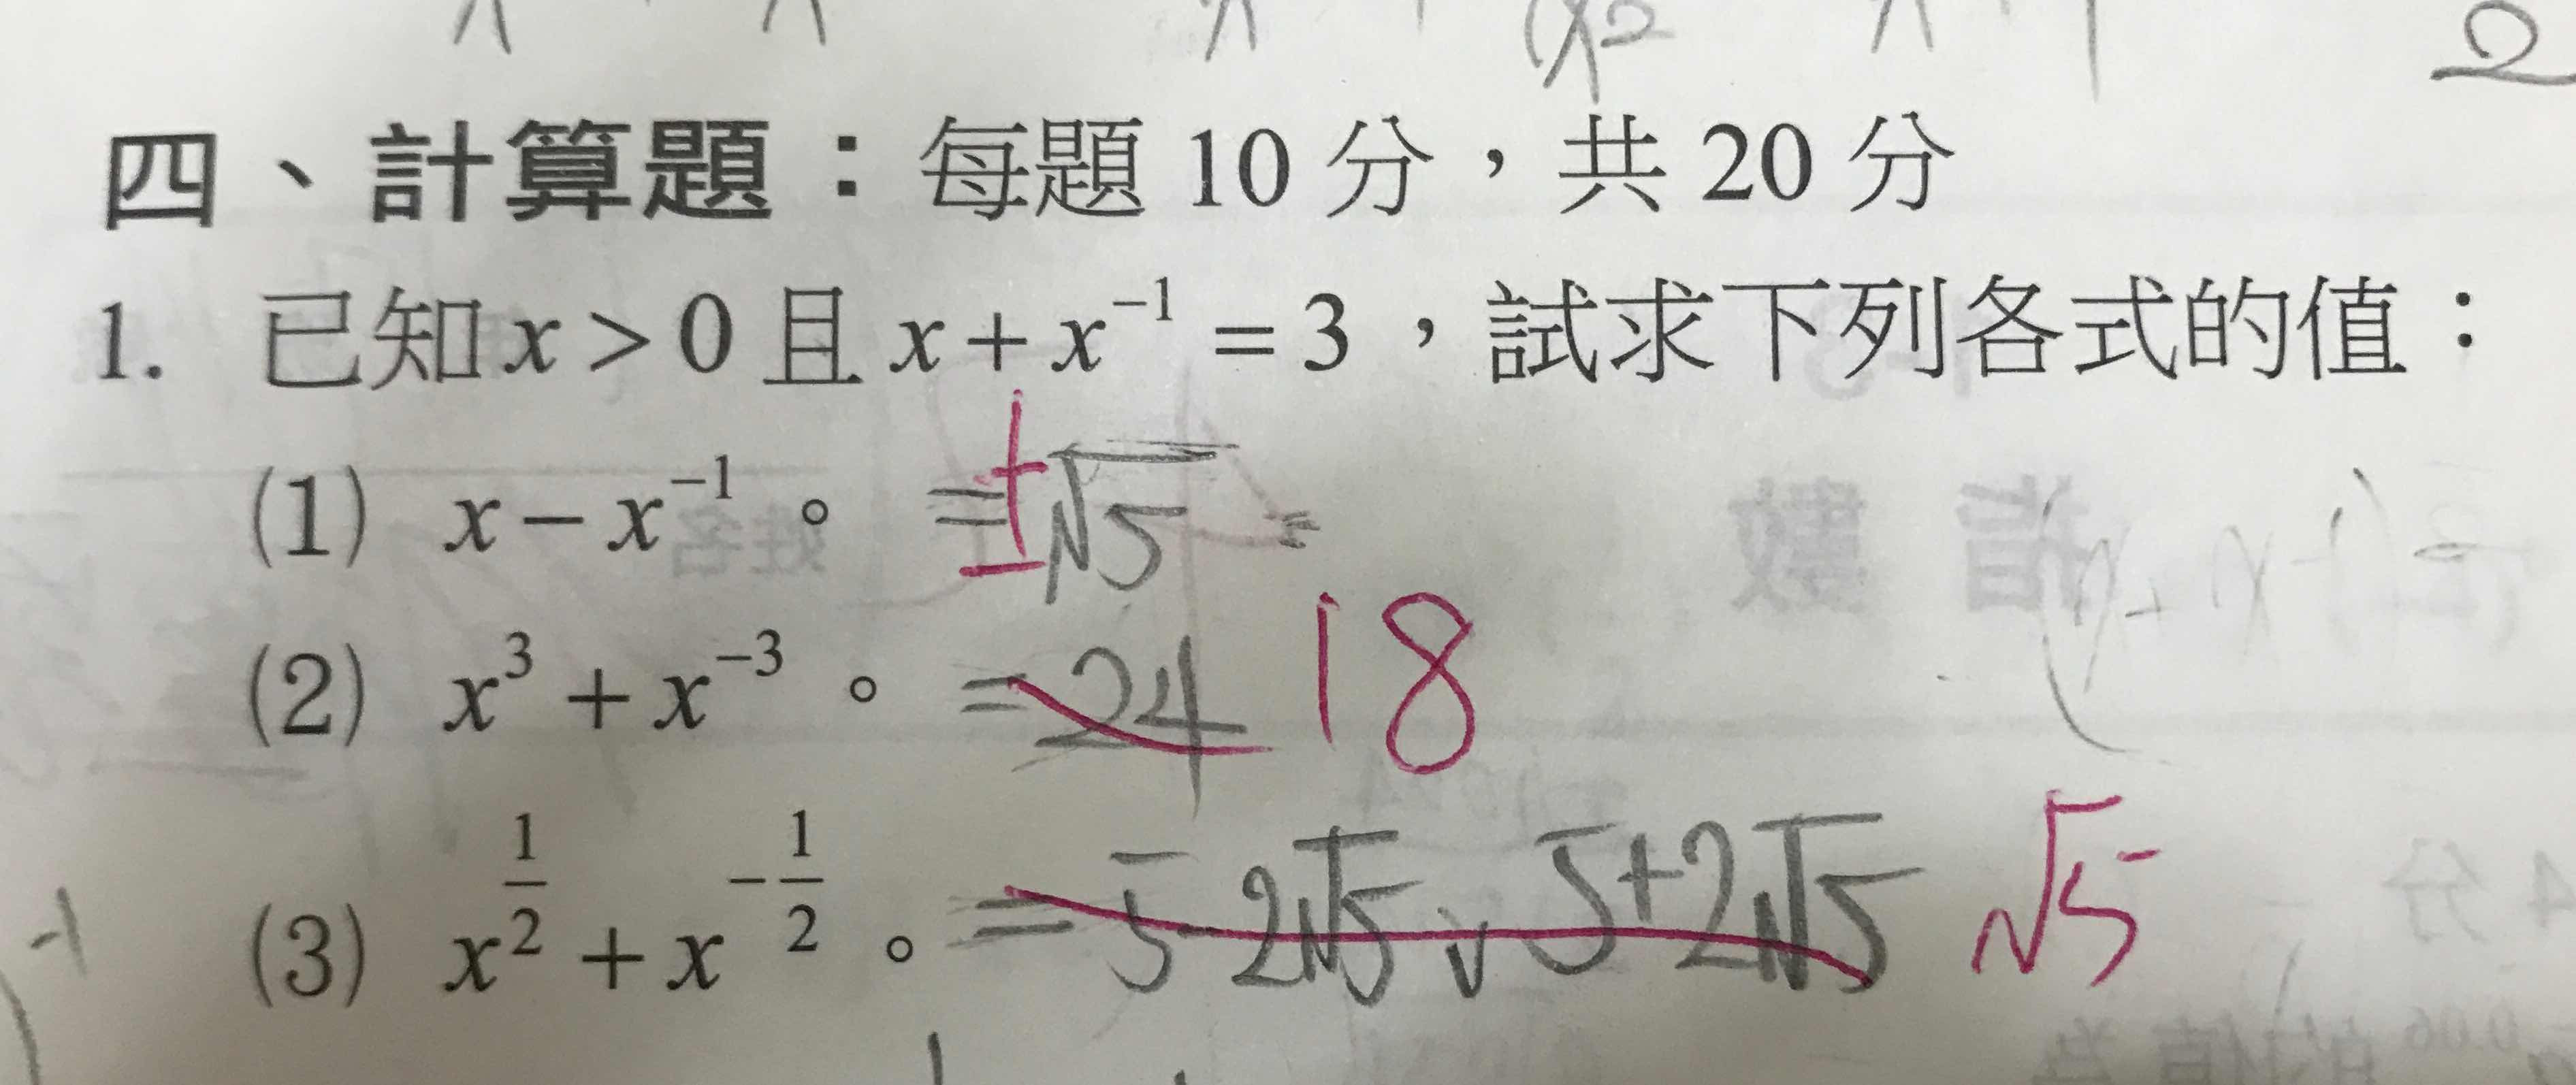 四、計算題：每題 10 分，共 20 分
1. 已知 x > 0 且 x + x⁻¹ = 3，試求下列各式的值：
(1) x − x⁻¹。 = ±√5 =
(2) x³ + x⁻³。 = 24 18
(3) x^(1/2) + x^(-1/2)。 = 5-2√5 v 5+2√5 √5